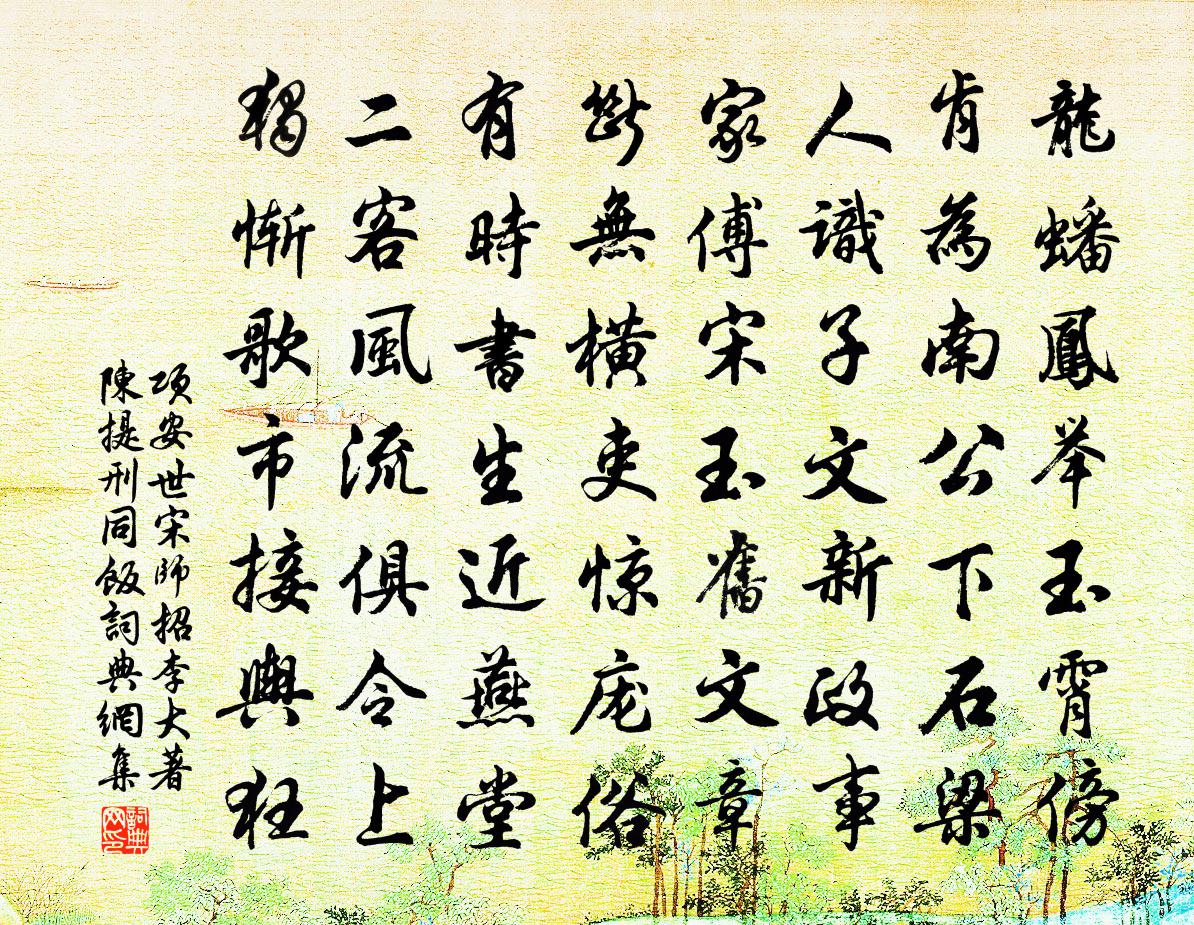 龍蟠鳳举玉霄傍
肯為南公下石梁
人識子文新政事
家傅宋玉舊文章
斷無横吏惊庞俗
有時書生近燕堂
二客風流俱令上
獨慚歌市接輿狂
項安世宋師招李大著
陳提刑同飯詞典網集
詞典
网印